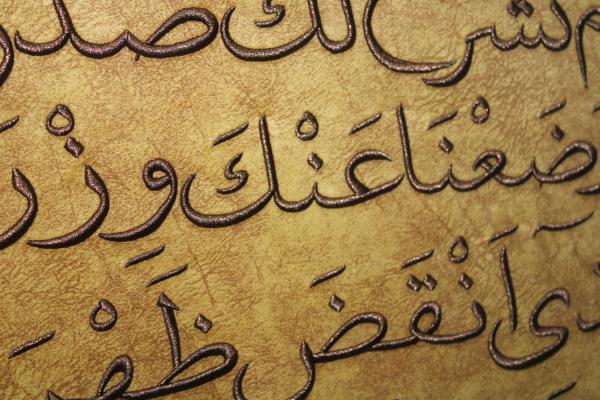 م نشرح لك صدر
ضَعْنَا عَنْكَ وِزْرَ
ذِى اَنْقَضَ ظَهْرَ